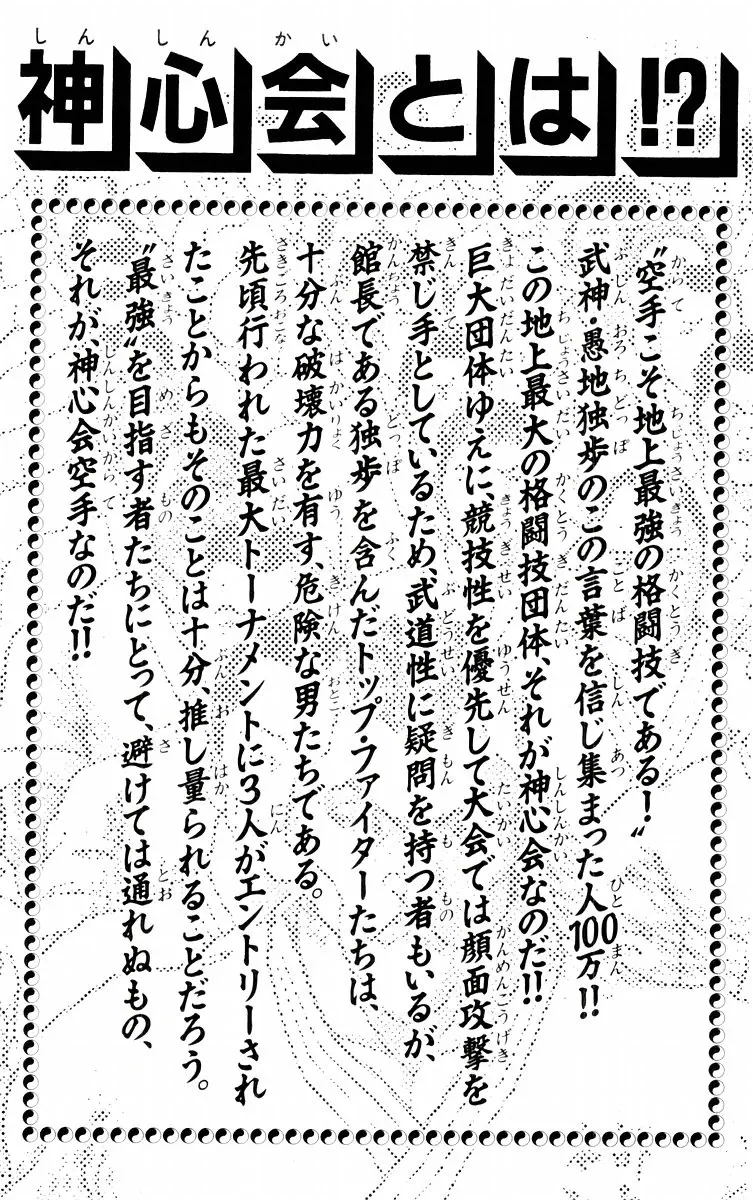 神心会とは!?
〝空手こそ地上最強の格闘技である！〟
武神・愚地独歩のこの言葉を信じ集まった人100万!!
この地上最大の格闘技団体、それが神心会なのだ!!
巨大団体ゆえに、競技性を優先して大会では顔面攻撃を
禁じ手としているため、武道性に疑問を持つ者もいるが、
館長である独歩を含んだトップ・ファイターたちは、
十分な破壊力を有す、危険な男たちである。
先頃行われた最大トーナメントに3人がエントリーされ
たことからもそのことは十分、推し量られることだろう。
〝最強〟を目指す者たちにとって、避けては通れぬもの、
それが、神心会空手なのだ!!